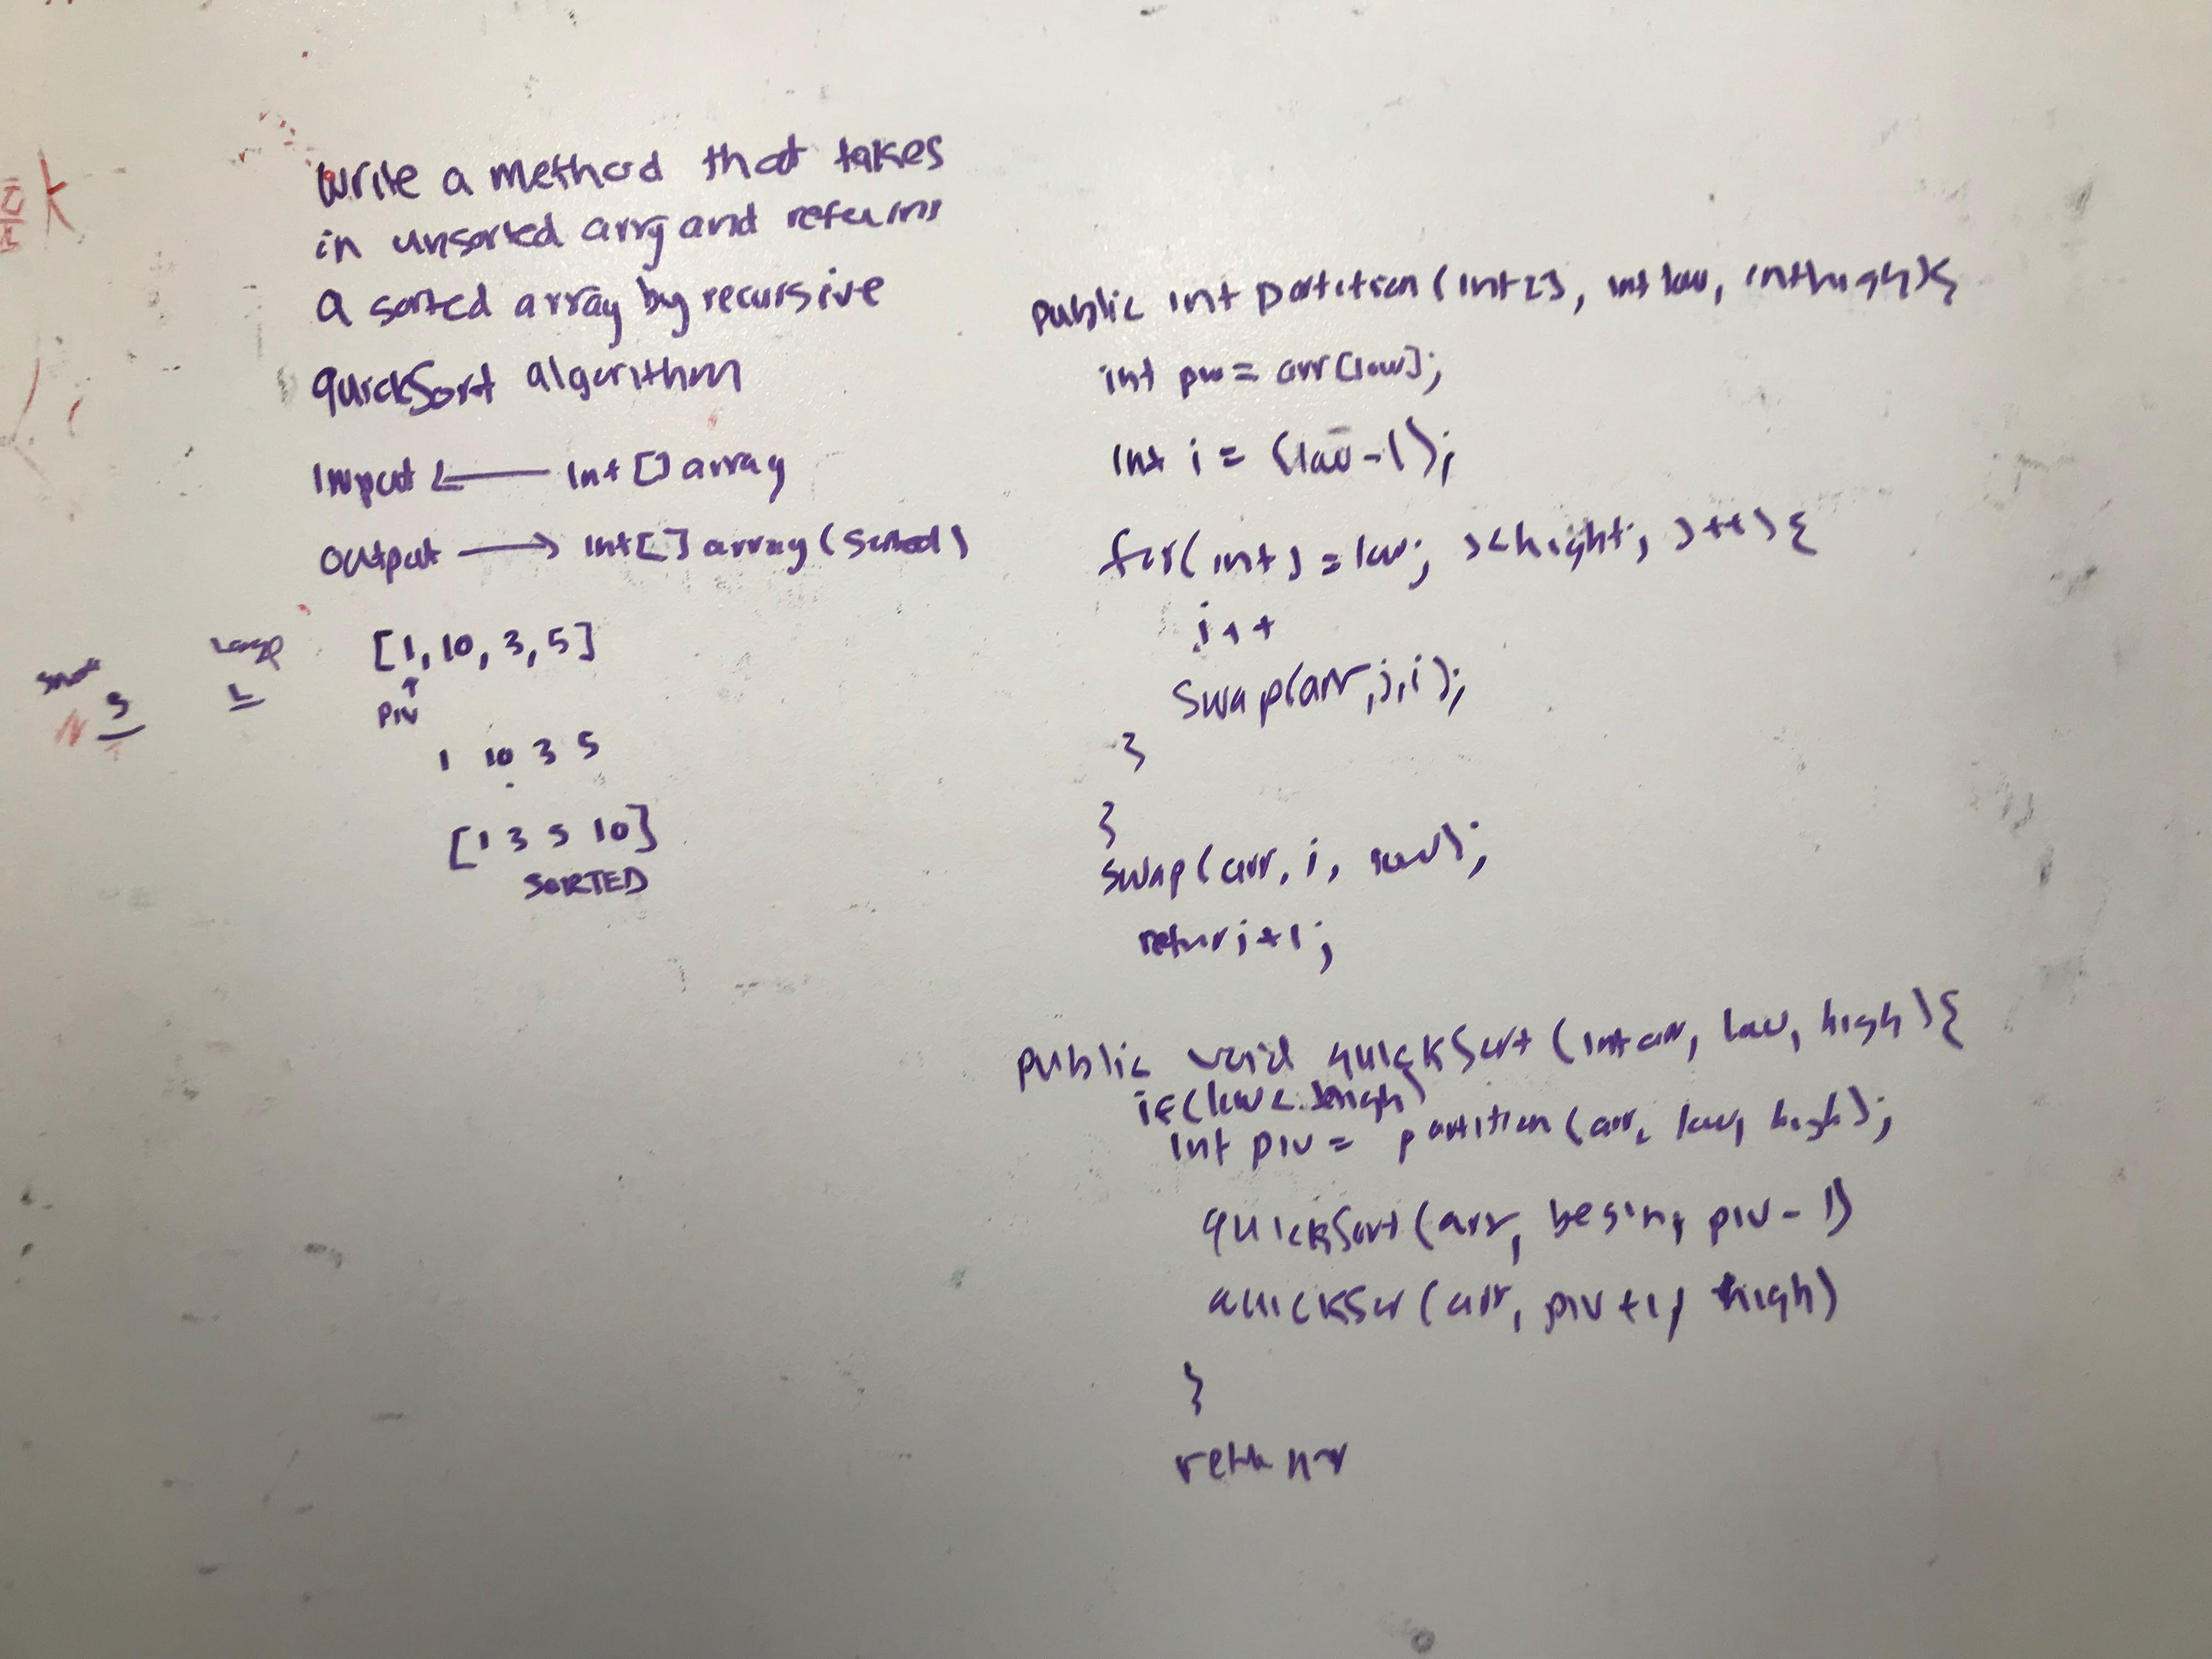 k
Write a method that takes
in unsorted arry and returns
a sorted array by recursive
quickSort algorithm
Input ← Int [] array
Output → Int[] array (sorted)
[1, 10, 3, 5]
↑
piv
Large
S
L
1 10 3 5
[1 3 5 10]
SORTED
public int partition (int[], int low, int high){
int piv = arr[low];
Int i = (low-1);
for(int j = low; j<hight; j++){
i++
Swap(arr,j,i);
}
}
swap(arr, i, low);
retur i+1;
public void quickSort (int arr, low, high){
if(low <
int piv = partition (arr, low, high);
quickSort (arr, begin, piv-1)
quickSor (arr, piv+1, high)
}